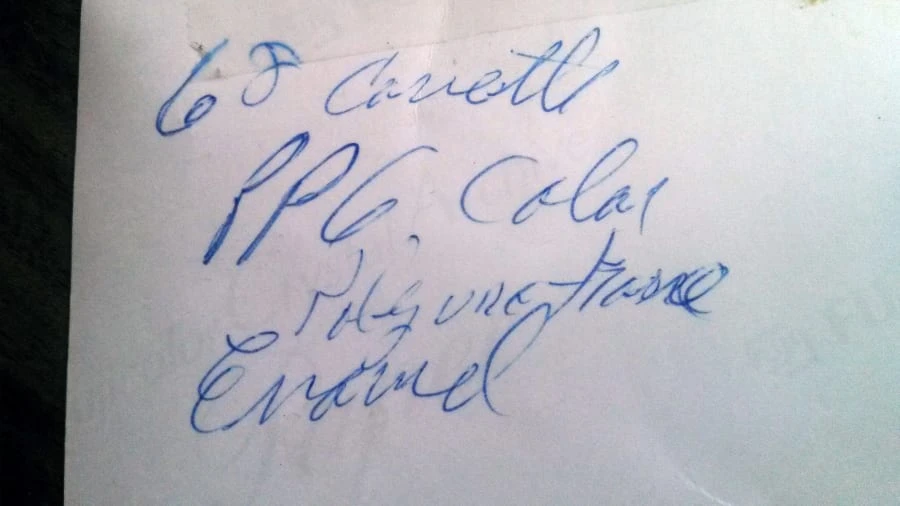 68 Corvette
PPG Color
Polyurethane
Enamel